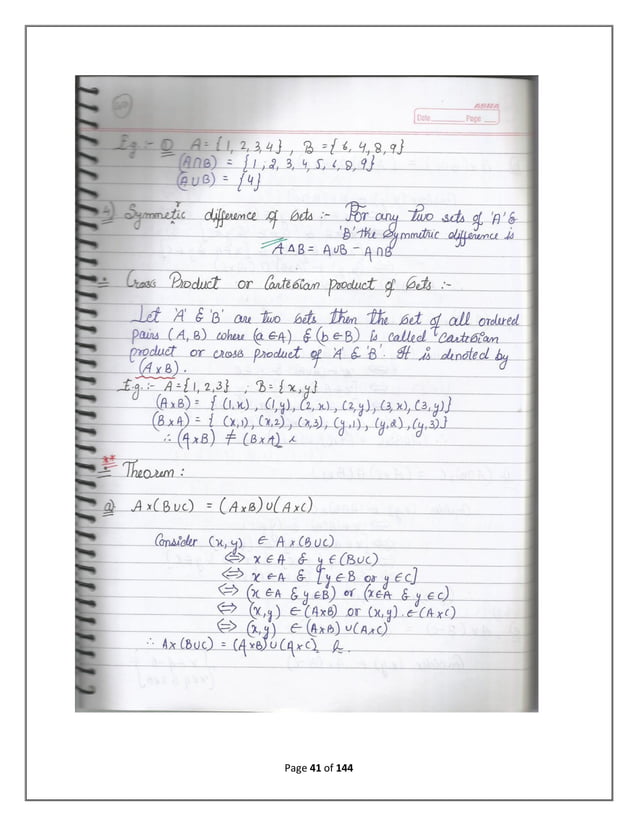 Date Page
E.g.:- ① A = {1, 2, 3, 4} , B = {6, 4, 8, 9}
(A∩B) = {1, 2, 3, 4, 5, 6, 8, 9}
(A∪B) = {4}
4) Symmetic difference of Sets :- For any two sets of 'A' &
'B' the Symmetric difference is
A Δ B = A∪B - A∩B
Cross Product or Cartesian product of Sets :-
Let 'A' & 'B' are two sets then the set of all ordered
pairs (A, B) where (a ∈ A) & (b ∈ B) is called Cartesian
product or cross product of 'A' & 'B'. It is denoted by
(A x B).
E.g.:- A = {1, 2, 3} , B = {x, y}
(A x B) = { (1, x) , (1, y) , (2, x) , (2, y) , (3, x), (3, y)}
(B x A) = { (x, 1) , (x, 2) , (x, 3), (y, 1) , (y, 2) , (y, 3)}
∴ (A x B) ≠ (B x A)
** Theorem :
a) A x (B∪C) = (A x B) ∪ (A x C)
Consider (x, y) ∈ A x (B∪C)
⇔ x ∈ A & y ∈ (B∪C)
⇔ x ∈ A & [y ∈ B or y ∈ C]
⇔ (x ∈ A & y ∈ B) or (x ∈ A & y ∈ C)
⇔ (x, y) ∈ (A x B) or (x, y) ∈ (A x C)
⇔ (x, y) ∈ (A x B) ∪ (A x C)
∴ A x (B∪C) = (A x B) ∪ (A x C)
Page 41 of 144